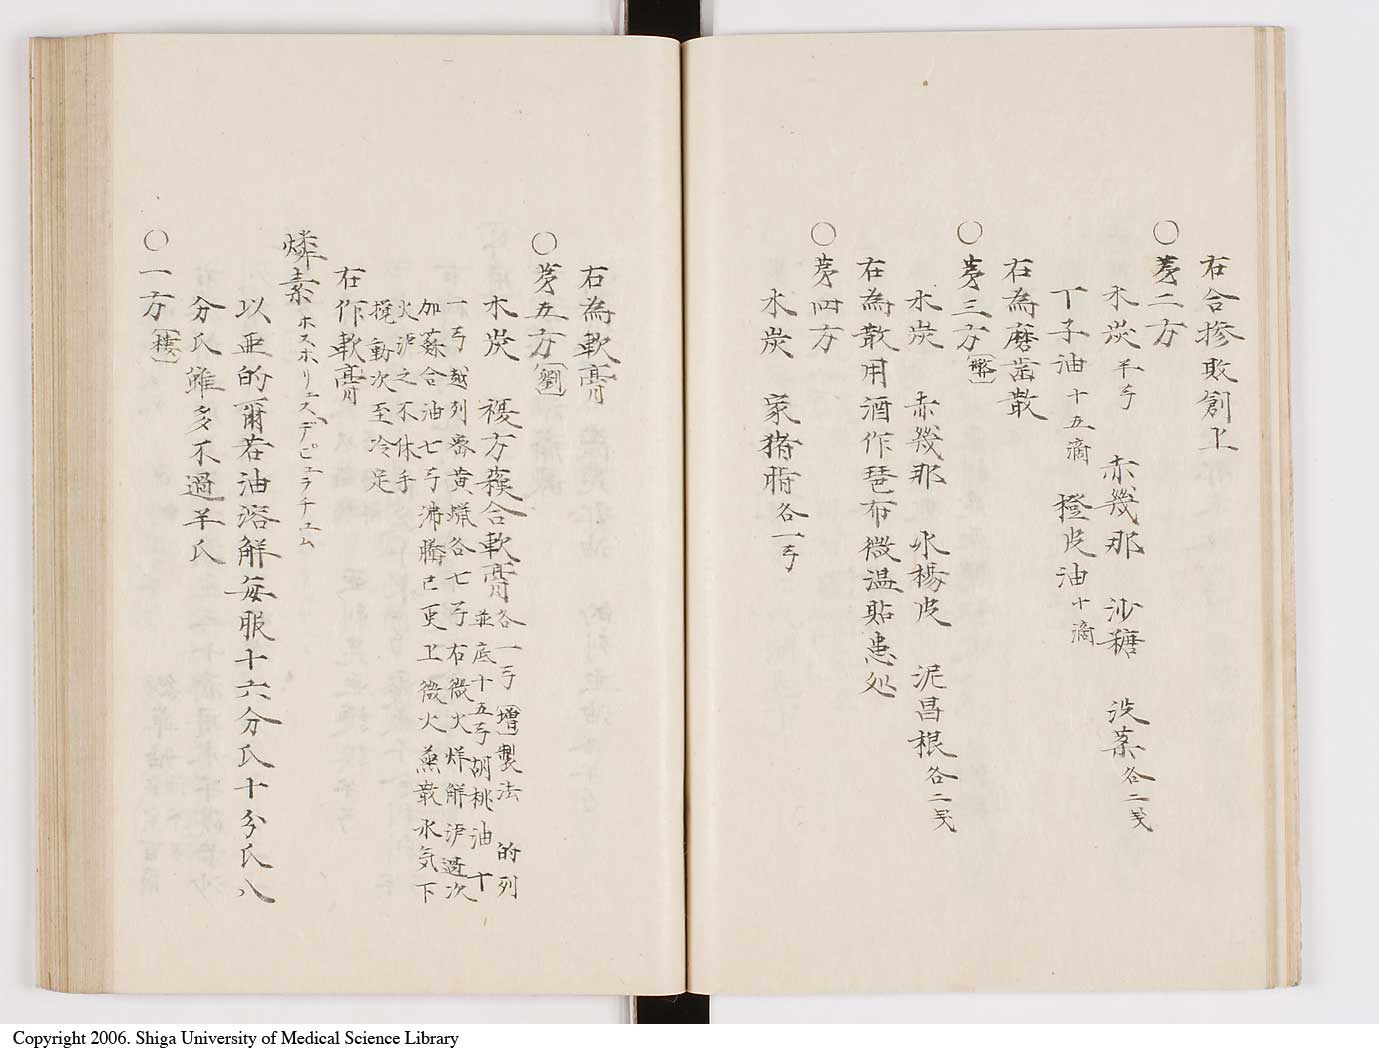 右合摻敗創上
○第二方
木炭半弓 赤幾那 沙糖 没薬各二戔
丁子油十五滴 橙皮油十滴
右為磨歯散
○第三方
木炭 赤幾那 水楊皮 泥昌根各二戔
右為散用酒作琶布微温貼患処
○第四方
木炭 家猪脂各一弓
右為軟膏
○第五方〔劉〕
木炭 複方蘇合軟膏各一弓〔増〕製法 的列
並底十五弓胡桃油十
一弓越列番黄蝋各七弓右微火烊解沪過次
加蘇合油七弓沸騰已更上微火蒸散水気下
火沪之不休手
撹動次至冷定
右作軟膏
燐素ホスホリュスデピュラチュム
以亜的爾若油溶解毎服十六分氏十分氏八
分氏雖多不過半氏
○一方〔楼〕
Copyright 2006. Shiga University of Medical Science Library